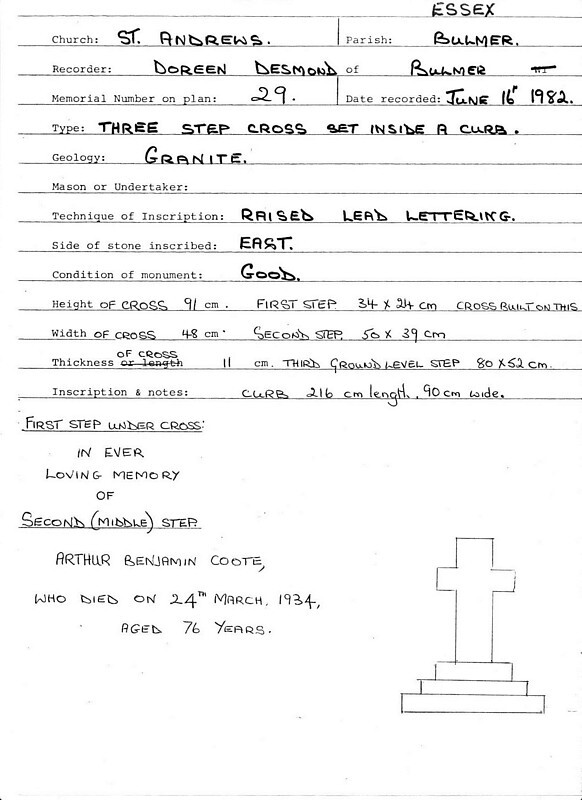 ESSEX
Church: ST. ANDREWS. Parish: BULMER.
Recorder: DOREEN DESMOND of BULMER
Memorial Number on plan: 29. Date recorded: JUNE 16th 1982.
Type: THREE STEP CROSS SET INSIDE A CURB.
Geology: GRANITE.
Mason or Undertaker:
Technique of Inscription: RAISED LEAD LETTERING.
Side of stone inscribed: EAST.
Condition of monument: GOOD.
Height OF CROSS 91 cm. FIRST STEP 34 x 24 cm CROSS BUILT ON THIS
Width OF CROSS 48 cm. SECOND STEP. 50 x 39 cm
OF CROSS
Thickness or length 11 cm. THIRD GROUND LEVEL STEP 80 x 52 cm.
Inscription & notes: CURB 216 cm length, 90 cm wide.
FIRST STEP UNDER CROSS:
IN EVER
LOVING MEMORY
OF
SECOND (MIDDLE) STEP
ARTHUR BENJAMIN COOTE,
WHO DIED ON 24TH MARCH, 1934,
AGED 76 YEARS.